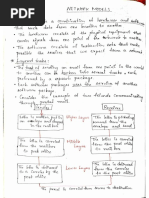 NETWORK MODELS
is a combination of hardware and software
that sends data from one location to another
→ The hardware consists of the physical equipment that
carries signals from one point of the network to another.
→ The software consists of instruction sets that make
possible the services that we expect from a network.
→ Layered tasks:
The task of sending an email from one point in the world
to another can be broken into several tasks, each
performed by a separate software package. Each
software package uses the services of another
software package.
→ Consider an example of two friends communicating
through postal mail
Sender
Receiver
The letter is written, put in
an envelope and dropped in
the mailbox
Higher Layers
The letter is picked up,
removed from the
envelope and read
The letter is carried
from the mailbox to
the post office
Middle Layers
The letter is carried
from the post office
to the mailbox
The letter is delivered
to a carrier by the
post office
Lower Layers
The letter is delivered
from the carrier to
the post office
The parcel is carried from source to destination